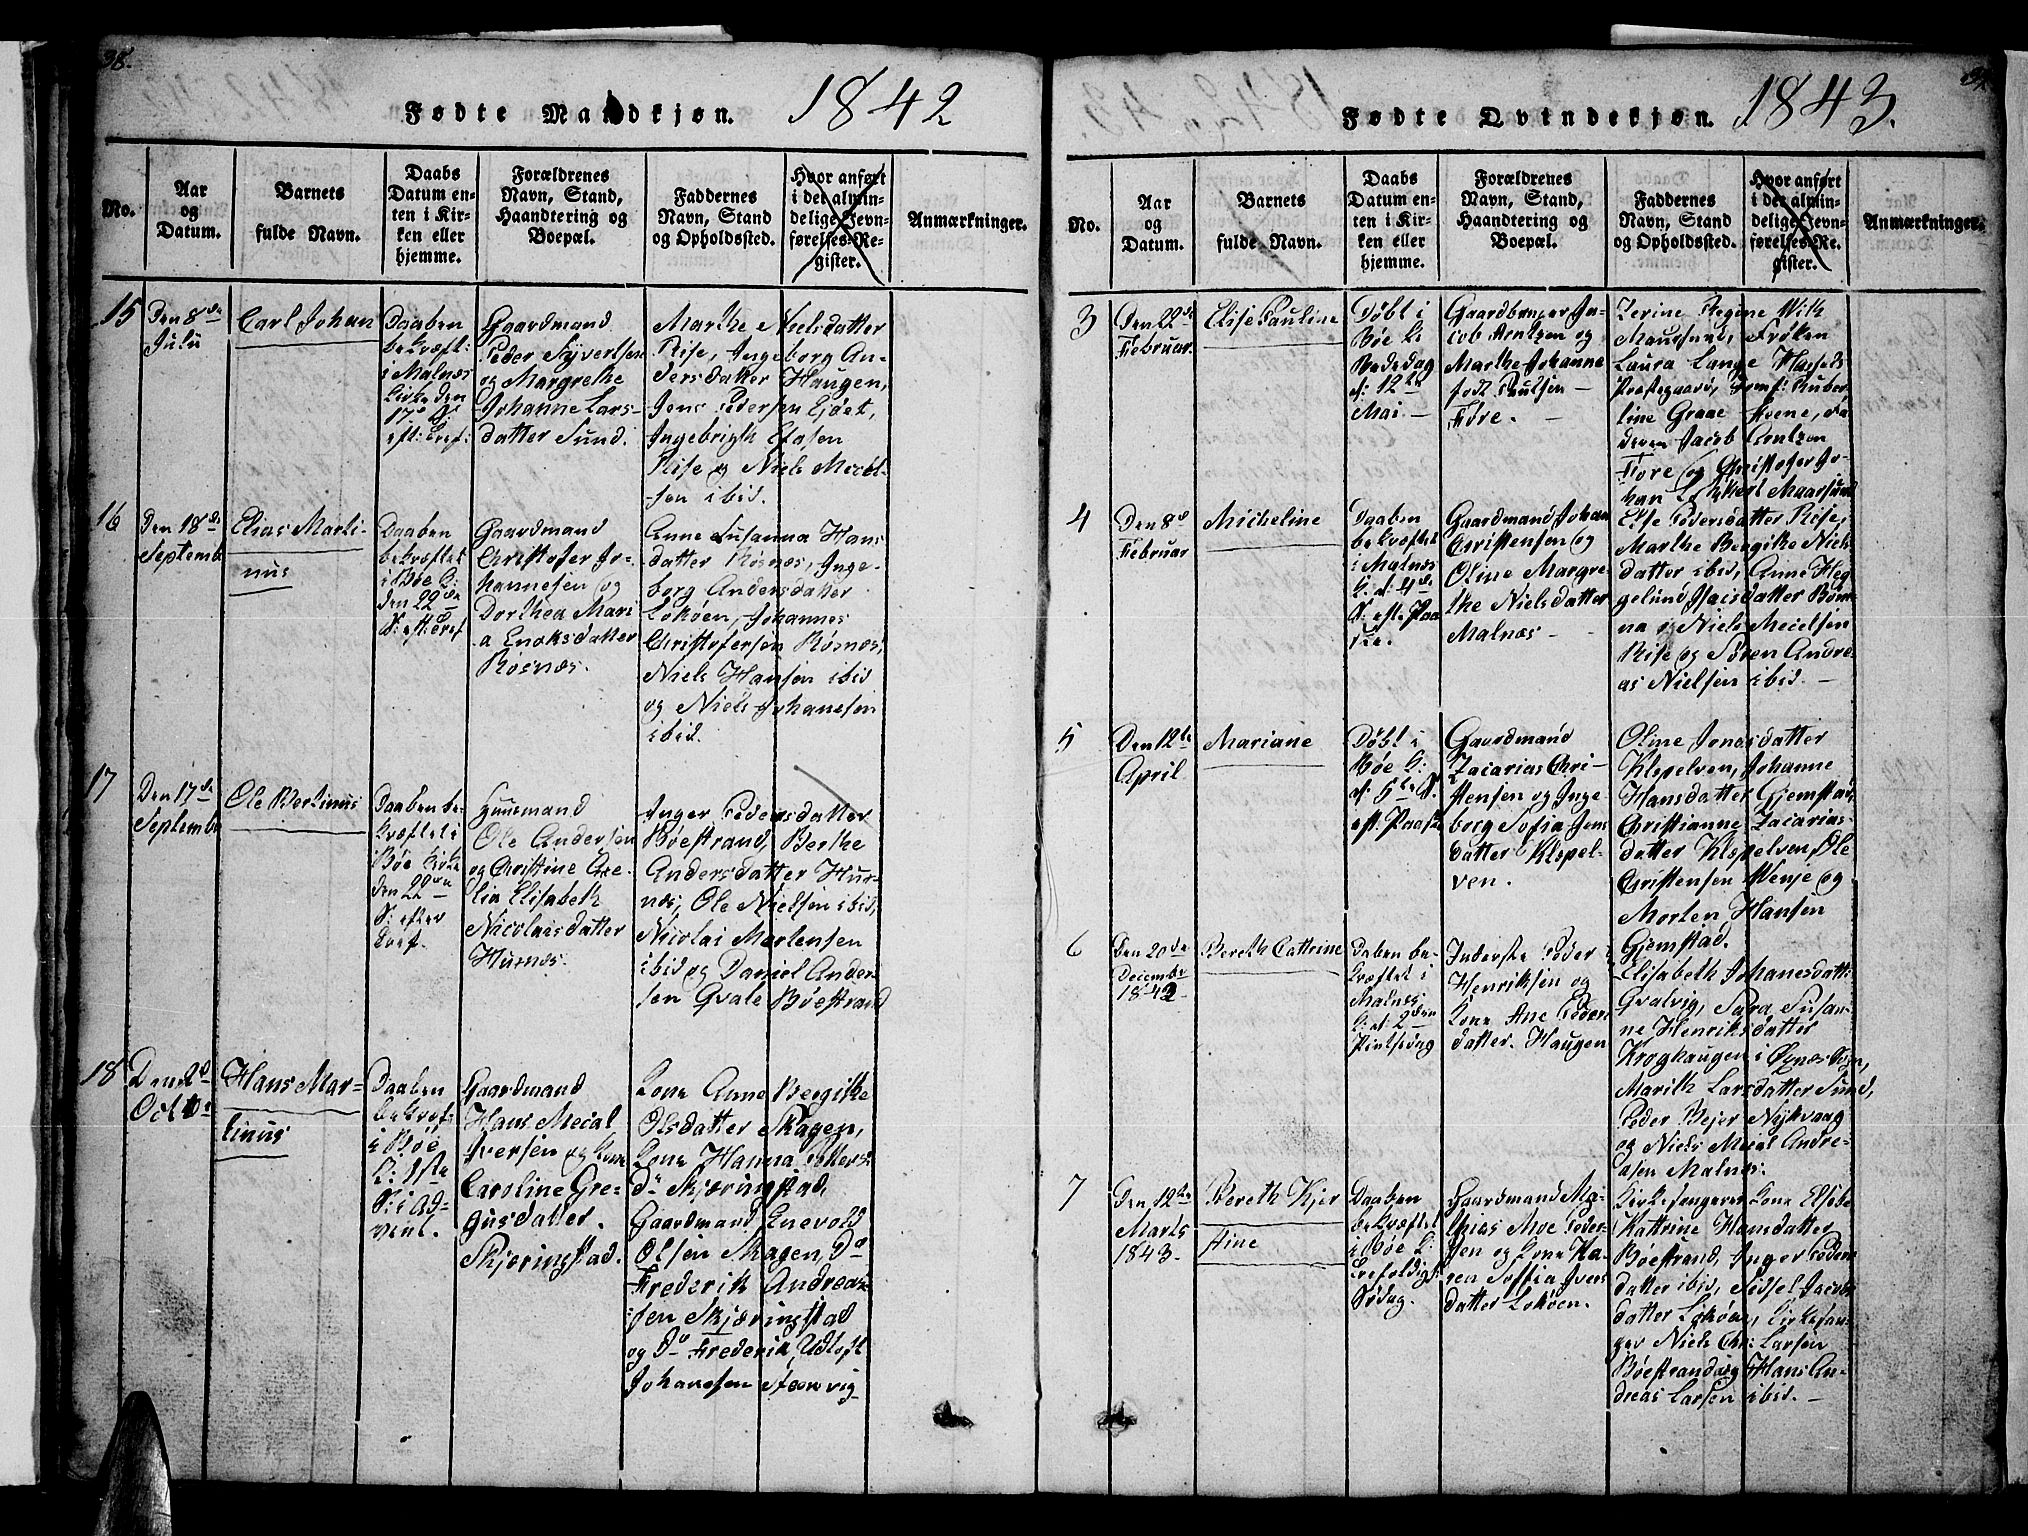 38.
Fødte Mandkjøn. 1842
No.
Aar
og
Datum.
Barnets
fulde Navn.
Daabs
Datum en-
ten i Kir-
ken eller
hjemme.
Forældrenes
Navn, Stand,
Haandtering og
Boepæl.
Faddernes
Navn, Stand
og Opholdssted.
Hvor anført
i det almin-
delige Jevn-
førelses-Re-
gister.
Anmærkninger.
15
Den 8de
Julii
Carl Johan
Daaben
bekræft:
i Malnes
Kirke den
17de S:
eft: Tref:
Gaardmand
Peder Syvertsen
og Margrethe
Johanne Lars-
datter Sund.
Marthe Nielsdatter
Rise, Ingeborg An-
dersdatter Haugen,
Jens Pedersen
Ingebrigt
Rise og Niels Mecel-
sen ibid.
16
Den 18de
Septembr
Elias Marti-
nus
Daaben
bekræftet
i Bøe K:
den 22de
S: eft: Tref
Gaardmand
Christofer Jo-
hannesen og
Dorthea Mari-
a Enoksdatter
Røsnæs.
Anne Susanna Hans
datter Røsnæs, Inge-
borg Andersdatter
Lokøen, Johannes
Christofersen Røsnæs,
Niels Hansen ibid
og Niels Johansen
ibid.
17
Den 17de
Septembr
Ole Bertinus
Daaben be-
kræftet i
Bøe Kirke
den 22de
S: efter
Tref.
Huusmand
Ole Andersen
og Christine Ce-
lia Elisabeth
Nicolaisdatter
Hurnæs.
Inger Pedersdatter
Bøestrand, Berthe
Andersdatter Hur-
næs, Ole Nielsen ibid,
Nicolai Mortensen
ibid og Daniel Ander-
sen Qvale Bøestrand
18
Den 2de
Octbr
Hans Mar-
tinus
Daaben
bekræft
i Bøe
K: 1ste
S: i Ad-
vent.
Gaardmand
Hans Mecal
Iversen og Kone
Caroline Gre-
gusdatter.
Skjæringstad.
Kone Anne Bergithe
Olsdatter Skagen,
Kone Hanna Petters-
dr Skjæringstad,
Gaardmand Enevold
Olsen Skagen, Do
Frederik Andrea-
sen Skjæringstad
og Do Frederik Udtoft
Johansen Steenvig
39
Fødte Qvindekjøn. 1843.
No.
Aar
og
Datum.
Barnets
fulde Navn.
Daabs
Datum en-
ten i Kir-
ken eller
hjemme.
Forældrenes
Navn, Stand,
Haandtering og
Boepæl.
Faddernes
Navn, Stand
og Opholdssted.
Hvor anført
i det almin-
delige Jevn-
førelses-Re-
gister.
Anmærkninger.
3
Den 22de
Februar.
Elise Pauline
Døbt i
Bøe K:
Bededag
d: 12te
Mai.
Gaardbruger Ja-
cob Arntzen og
Marthe Johanne
født Poulsen
Føre.
Zerine Regine With
Maursund, Frøken
Laura Lange Hassels
Præstegaard, Jomf: Huber-
line Graae Hvene, Fa-
deren Jacob Arntzen
Føre og Christofer Jo-
han Maarsund
4
Den 8de
Februar
Micheline
Daaben
bekræftet
i Malnæs
K: d: 4de
S: eft: Paa
ske.
Gaardmand Johan
Christensen og
Oline Margre-
the Nielsdatter
Malnæs
Else Pedersdatter Rise,
Marthe Bergithe Niels
datter ibid, Anne Heg-
gelund Isaisdatter
og Niels Mecelsen
Rise og Søren Andre-
as Nielsen ibid.
5
Den 12te
April
Mariane
Døbt i
Bøe K:
d: 5te S.
eft. Paaske
Gaardmand
Zacarias Chri-
stensen og Inge-
borg Sofia Jens
datter Klepel-
ven.
Oline Jonsdatter
Klepelven, Johanne
Hansdatter Gjemstad,
Christianne Zacarias-
datter Klepelven, Ole
Christensen Wenje og
Morten Hansen
Gjemstad.
6
Den 20de
Decembr
1842.
Bereth Cattrine
Daben be-
kræftet i
Malnes
K: d: 2den
Pintsedag
Inderste Peder
Henriksen og
Kone Ane Peders
datter. Haugen
Elisabeth Johanesdatt:
Qvalvig, Sara Susan-
ne Henriksdatter
Kroghaugen i Øxnæs Sogn,
Marith Larsdatter Sund,
Peder Bejer Nykvaag
og Niels Mecal Andre-
asen Malnæs.
7
Den 12te
Marts
1843.
Bereth Kjer
stine
Daaben
bekræftet
i Bøe K:
Trefoldigh
Sødag.
Gaardmand Ma-
thias Moe Peder-
sen og Kone Ka-
ren Soffia Ivers
datter Lokøen.
Kirkesangeres Kone Elsebe
Kattrine Hansdatter
Bøestrand, Inger Peders
datter ibid, Sidsel Jacobs
datter Lokøen, Kirkesan-
ger Niels Chr: Larsen
Bøestrand og Hans An-
dreas Larsen ibid.